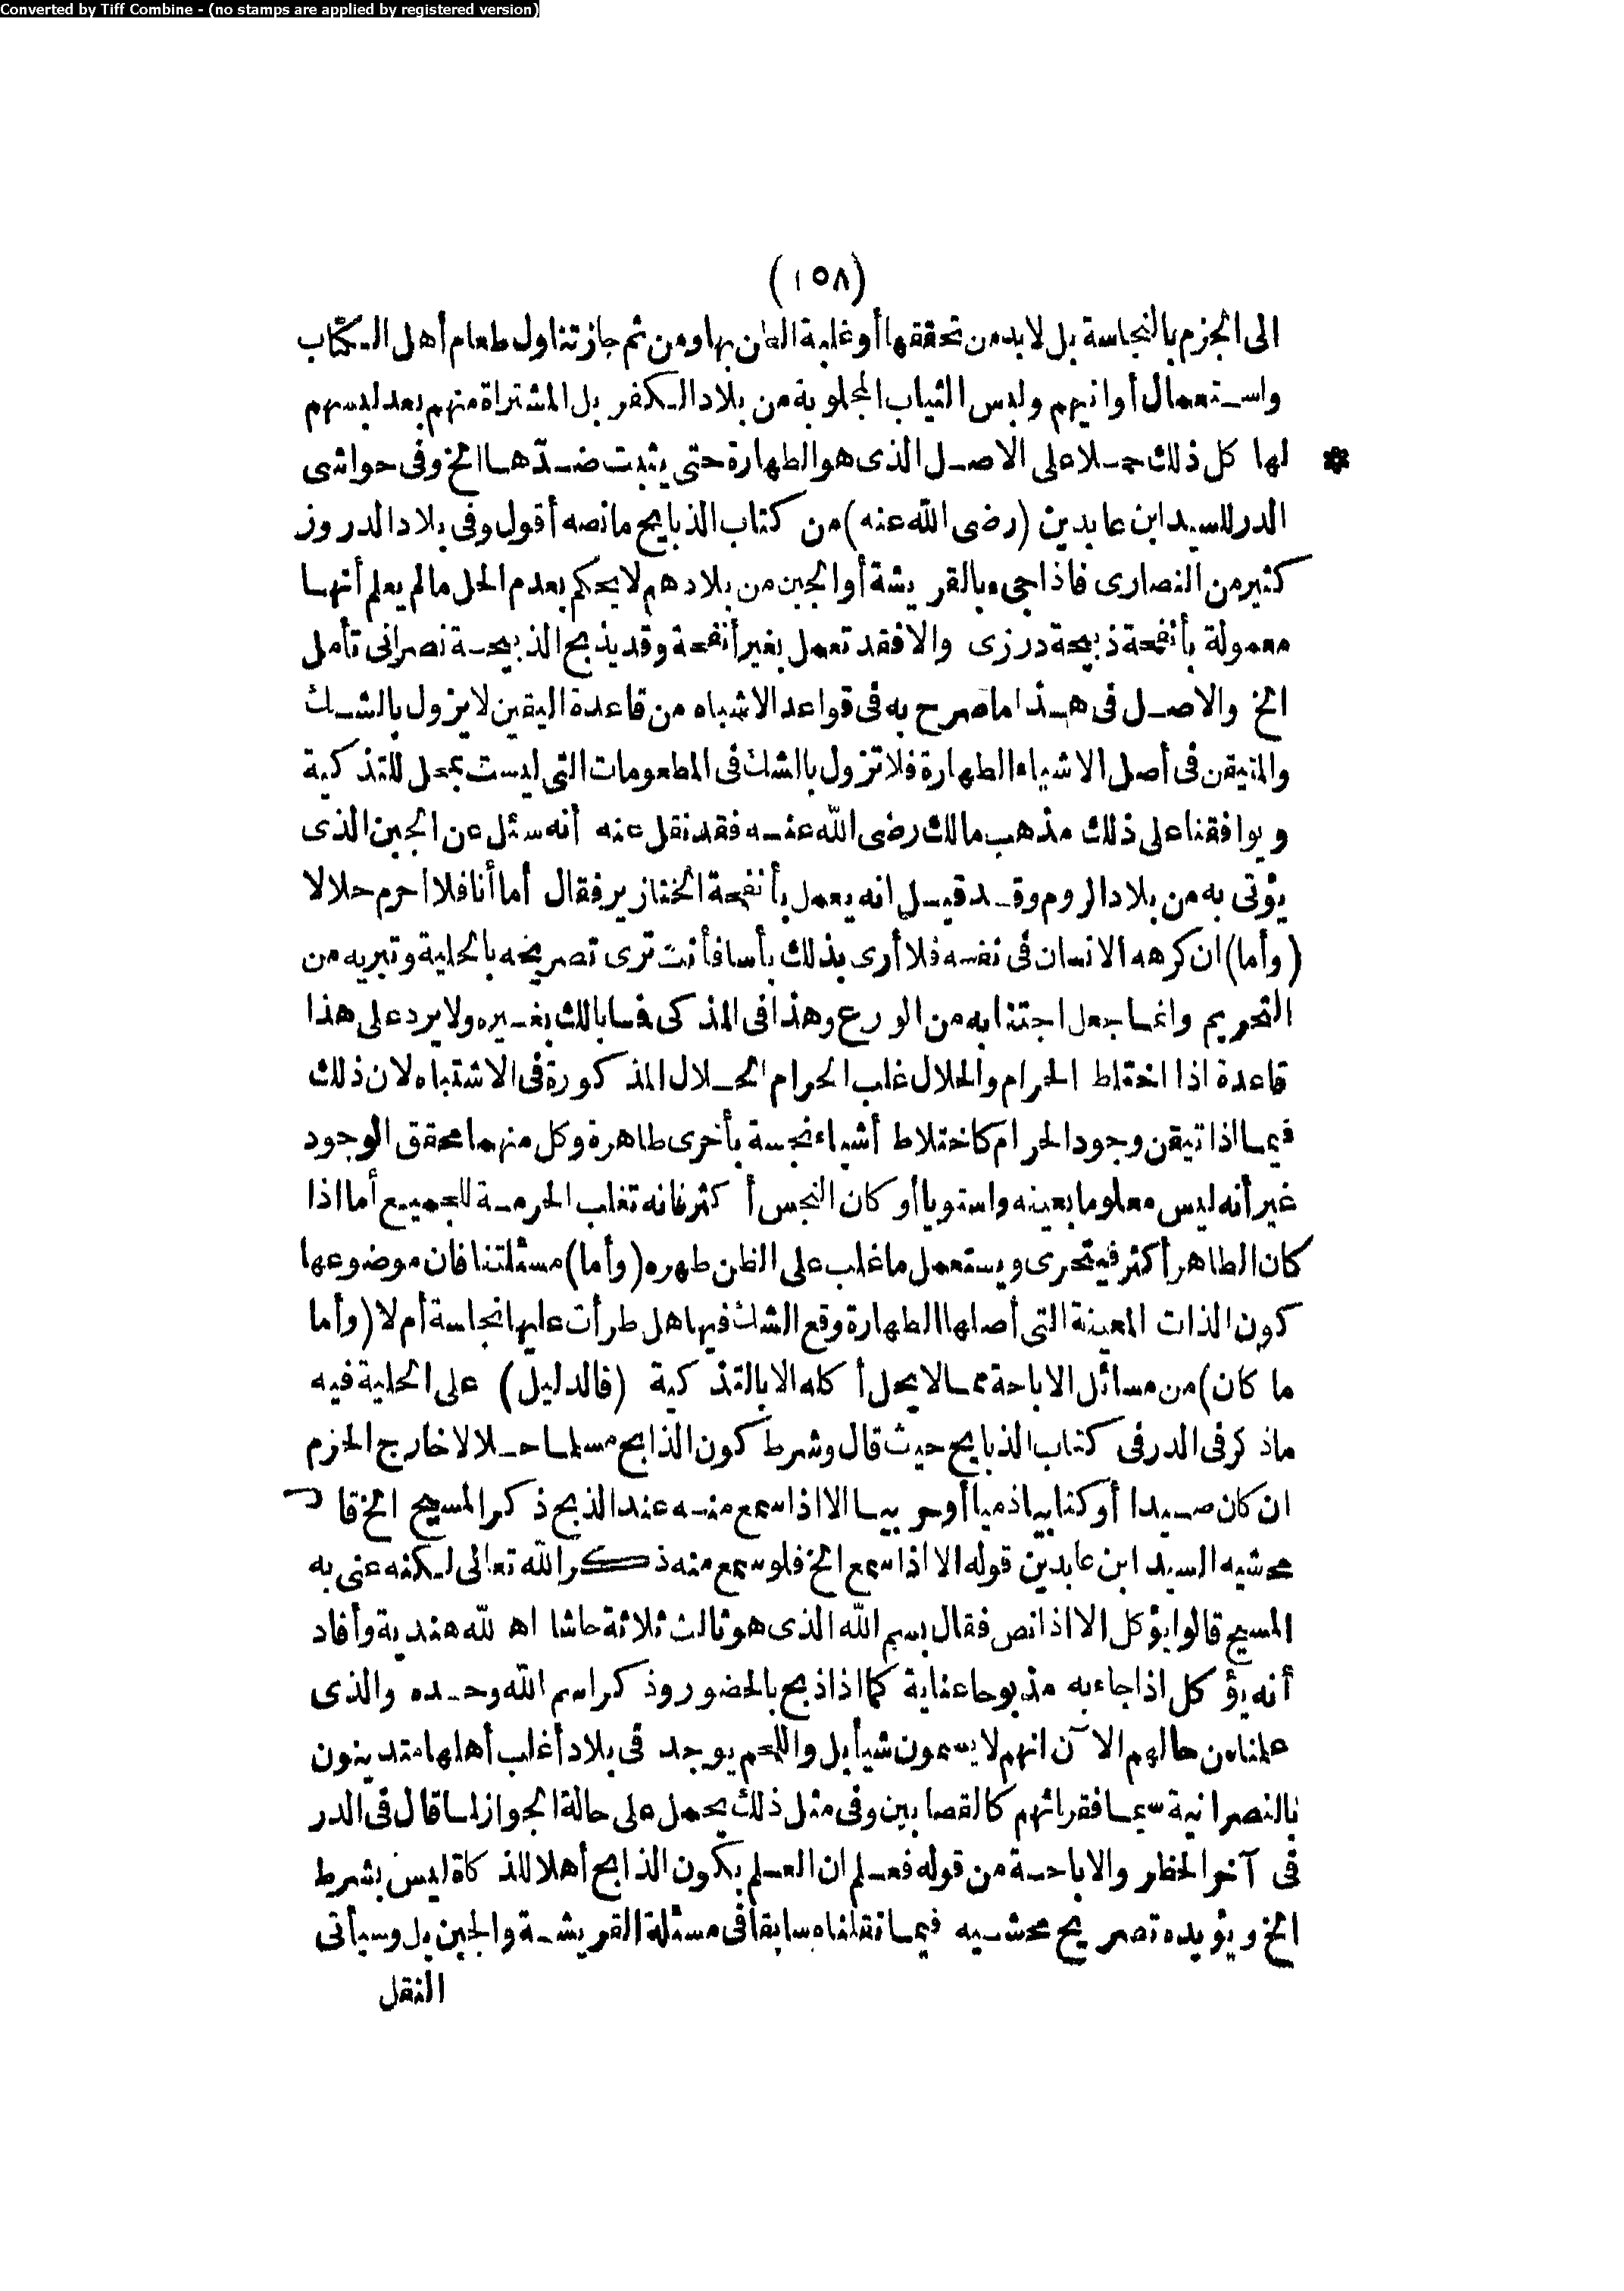 Converted by Tiff Combine - (no stamps are applied by registered version)
(١٥٨)
الى الجزم بالنجاسة بل لا بد من تحققها أو غلبة الظن بها ومن ثم جاز تناول طعام أهل الكتاب
واستعمال أوانيهم ولبس الثياب المجلوبة من بلاد الكفر بل المشتراة منهم بعد لبسهم
لها كل ذلك حملا على الاصل الذى هو الطهارة حتى يثبت ضدها الخ وفى حواشى *
الدر للسيد ابن عابدين (رضى الله عنه) من كتاب الذبايح ما نصه أقول وفى بلاد الدروز
كثير من النصارى فاذا جىء بالقريشة أو الجبن من بلادهم لا يحكم بعدم الحل ما لم يعلم أنها
معمولة بأنفحة ذبيحة درزى والا فقد تعمل بغير أنفحة وقد يذبح الذبيحة نصرانى تأمل
الخ والاصل فى هذا ما صرح به فى قواعد الاشباه من قاعدة اليقين لا يزول بالشك
والمتيقن فى أصل الاشياء الطهارة فلا تزول بالشك فى المطعومات التى ليست بمحل للتذكية
ويوافقنا على ذلك مذهب مالك رضى الله عنه فقد نقل عنه أنه سئل عن الجبن الذى
يؤتى به من بلاد الروم وقد قيل انه يعمل بأنفحة الخنازير فقال أما أنا فلا أحرم حلالا
(وأما) ان كرهه الانسان فى نفسه فلا أرى بذلك بأسا فأنت ترى تصريحه بالحلية وتبريه من
التحريم وانما جعل اجتنابه من الورع وهذا فى المذكى فما بالك بغيره ولا يرد على هذا
قاعدة اذا اختلط الحرام والحلال غلب الحرام الحلال المذكورة فى الاشتباه لان ذلك
فيما اذا تيقن وجود الحرام كاختلاط أشياء نجسة بأخرى طاهرة وكل منهما محقق الوجود
غير أنه ليس معلوما بعينه واستويا أو كان النجس أكثر فانه تغلب الحرمة للجميع أما اذا
كان الطاهر أكثر فيتحرى ويستعمل ما غلب على الظن طهره (وأما) مسئلتنا فان موضوعها
كون الذات المعينة التى أصلها الطهارة وقع الشك فيها هل طرأت عليها نجاسة أم لا (وأما
ما كان) من مسائل الاباحة مما لا يحل أكله الا بالتذكية (فالدليل) على الحلية فيه
ما ذكر فى الدر فى كتاب الذبايح حيث قال وشرط كون الذابح مسلما حلالا خارج الحزم
ان كان صيدا أو كتابيا ذميا أو حربيا الا اذا سمع منه عند الذبح ذكر المسيح الخ قال
محشيه السيد ابن عابدين قوله الا اذا سمع الخ فلو سمع منه ذكر الله تعالى لكنه عنى به
المسيح قالوا يؤكل الا اذا نص فقال بسم الله الذى هو ثالث ثلاثة حاشا اه لله هندية وأفاد
أنه يؤكل اذا جاء به مذبوحا عناية كما اذا ذبح بالحضور وذكر اسم الله وحده والذى
علمناه من حالهم الآن انهم لا يسمون شيأ بل واللحم يوجد فى بلاد أغلب أهلها متدينون
بالنصرانية سيما فقرائهم كالقصابين وفى مثل ذلك يحمل على حالة الجواز لما قال فى الدر
فى آخر الحظر والاباحة من قوله فعلم ان العلم بكون الذابح أهلا للذكاة ليس بشرط
الخ ويؤيده تصريح محشيه فيما نقلناه سابقا فى مسئلة القريشة والجبن بل وسيأتى
النقل